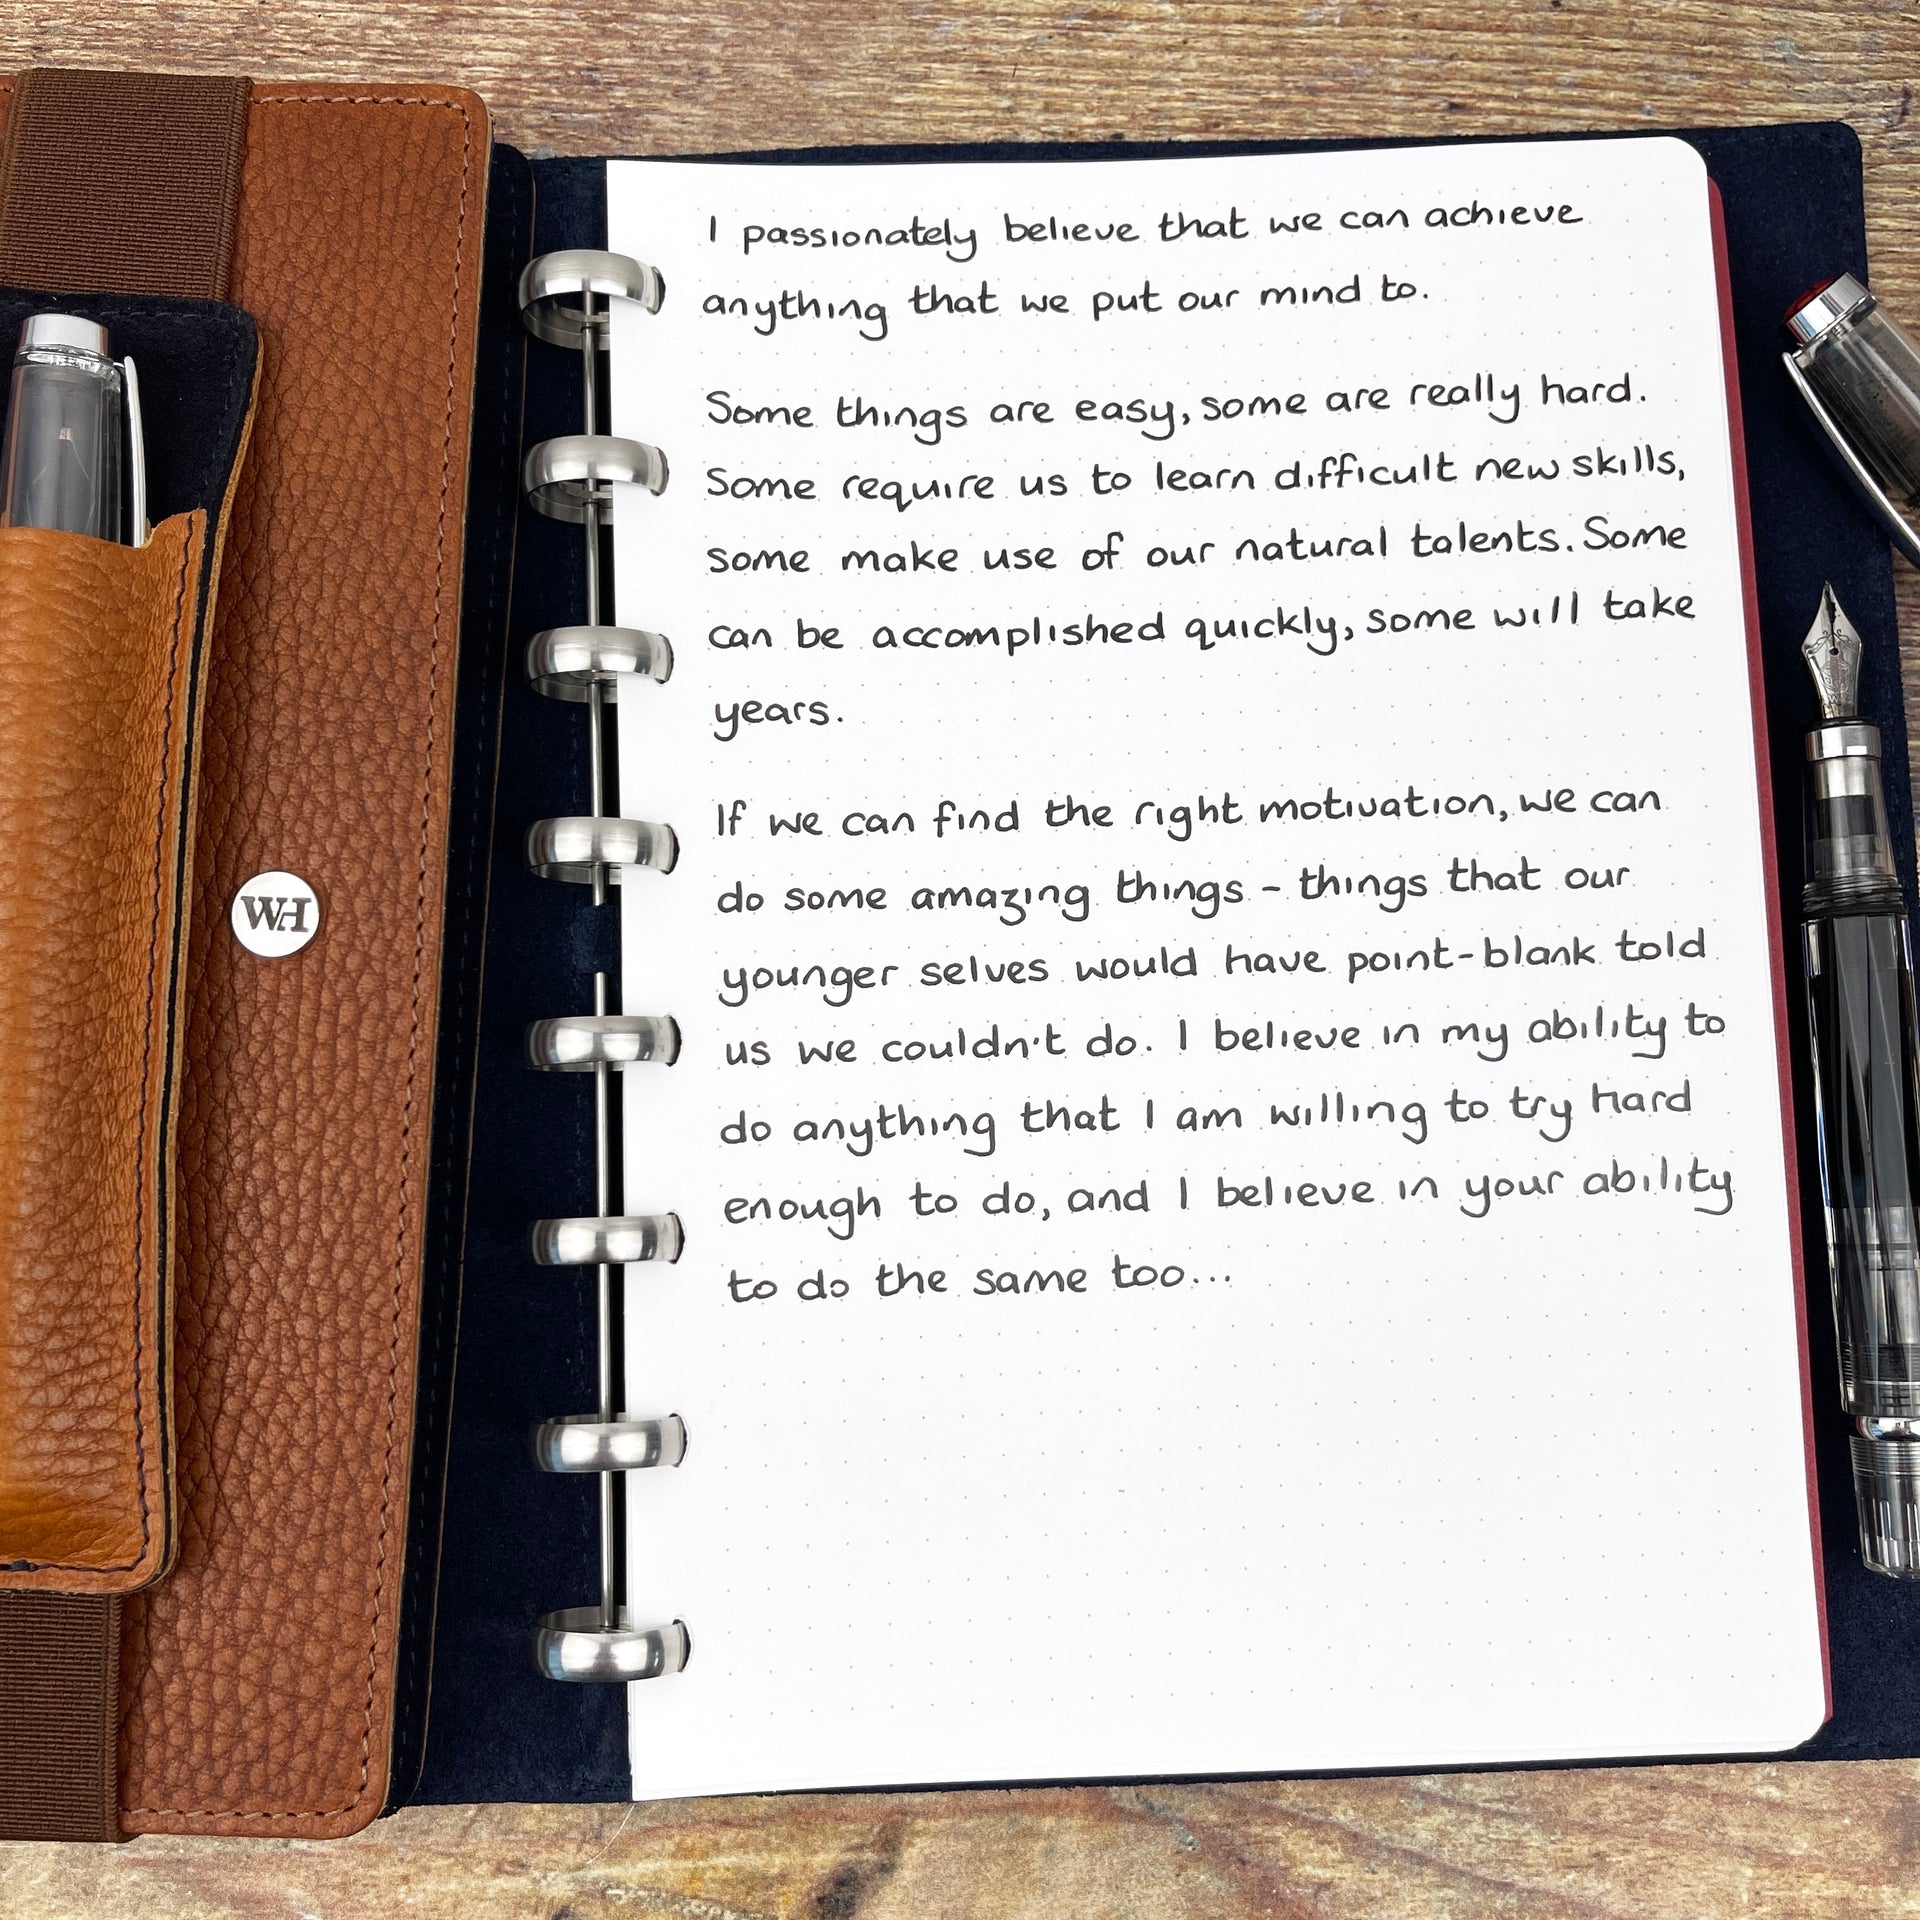 I passionately believe that we can achieve
anything that we put our mind to.
Some things are easy, some are really hard.
Some require us to learn difficult new skills,
some make use of our natural talents. Some
can be accomplished quickly, some will take
years.
If we can find the right motivation, we can
do some amazing things - things that our
younger selves would have point-blank told
us we couldn't do. I believe in my ability to
do anything that I am willing to try hard
enough to do, and I believe in your ability
to do the same too...
WH